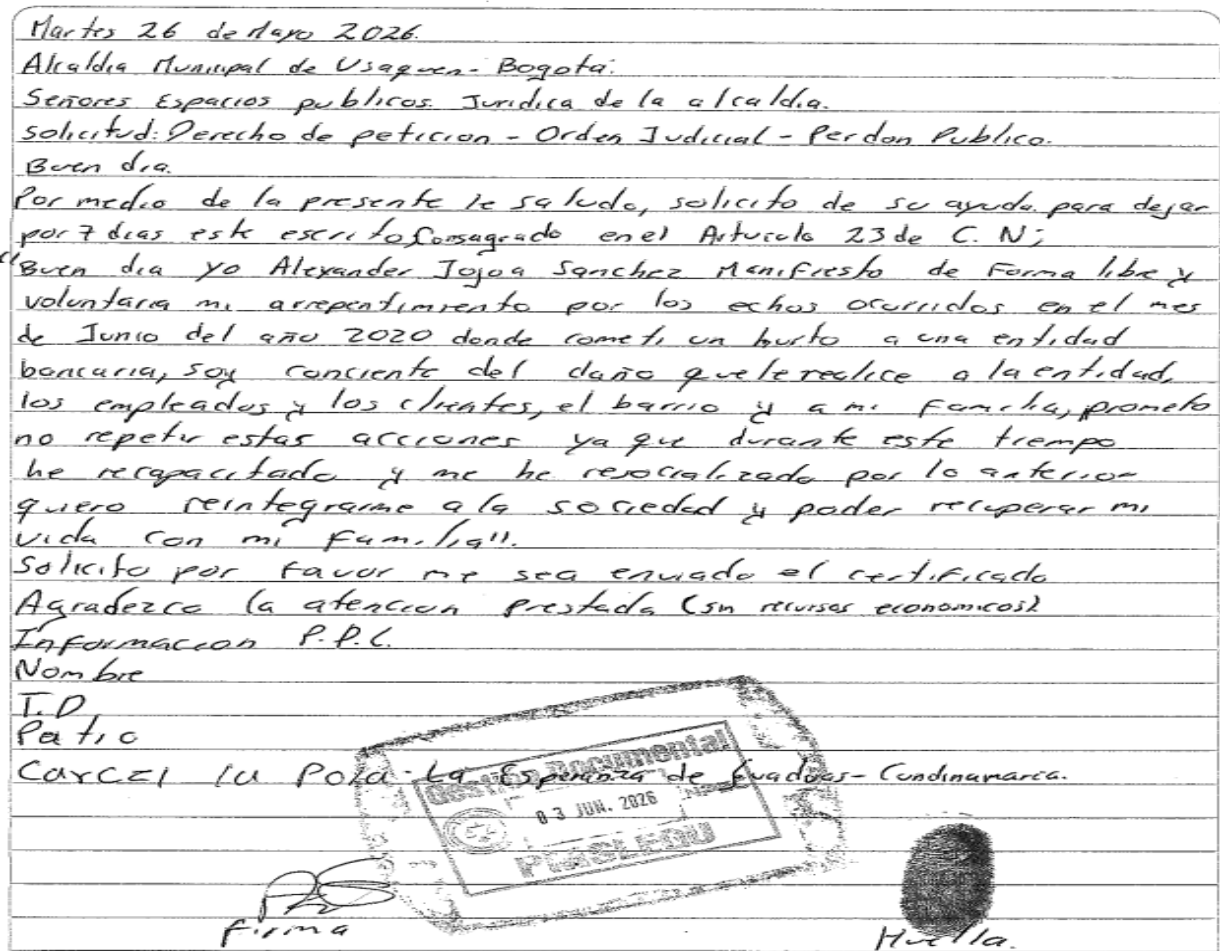 Martes 26 de Mayo 2026.
Alcaldia Municipal de Usaquen - Bogotá.
Señores Espacios publicos. Juridica de la alcaldia.
solicitud: Derecho de peticion - Orden Judicial - Perdon Publico.
Buen dia.
Por medio de la presente le saludo, solicito de su ayuda para dejar
por 7 dias este escrito consagrado en el Articulo 23 de C. N;
"Buen dia yo Alexander Jojoa Sanchez Manifiesto de Forma libre y
voluntaria mi arrepentimiento por los echos ocurridos en el mes
de Junio del año 2020 donde cometi un hurto a una entidad
bancaria, soy conciente del daño que le realice a la entidad,
los empleados y los clientes, el barrio y a mi Familia, prometo
no repetir estas acciones ya que durante este tiempo
he recapacitado y me he resocializado por lo anterior
quiero reintegrarme a la sociedad y poder recuperar mi
vida con mi Familia".
Solicito por favor me sea enviado el certificado
Agradezco la atencion prestada (sin recursos economicos)
Informaccion P.P.L.
Nombre
T.D
Patio
Carcel la Pola - La Esperanza de Guaduas - Cundinamarca.
Gestión Documental
03 JUN. 2026
Firma
Huella.